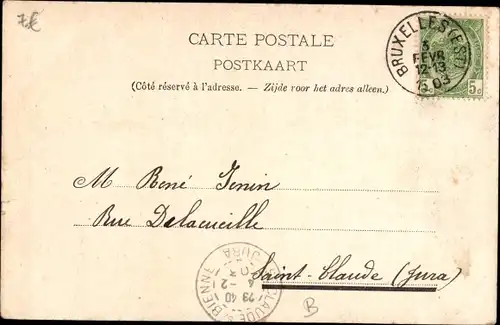 7€
CARTE POSTALE
POSTKAART
(Côté réservé à l'adresse. — Zijde voor het adres alleen.)
BRUXELLES (EST)
5
FEVR
12-13
03
5c
M René Jenin
Rue Delacueille
Saint-Claude (Jura)
BIENNE
JURA
B